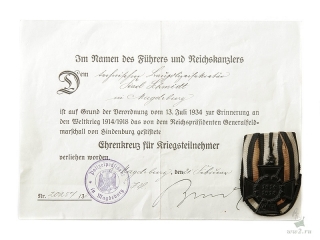 Im Namen des Führers und Reichskanzlers
Dem technischen
Karl Schmidt
in Magdeburg
ist auf Grund der Verordnung vom 13. Juli 1934 zur Erinnerung an
den Weltkrieg 1914/1918 das von dem Reichspräsidenten Generalfeld-
marschall von Hindenburg gestiftete
Ehrenkreuz für Kriegsteilnehmer
verliehen worden.
Magdeburg, den
Nr.
Polizeipräsident
in Magdeburg
ww2.ru